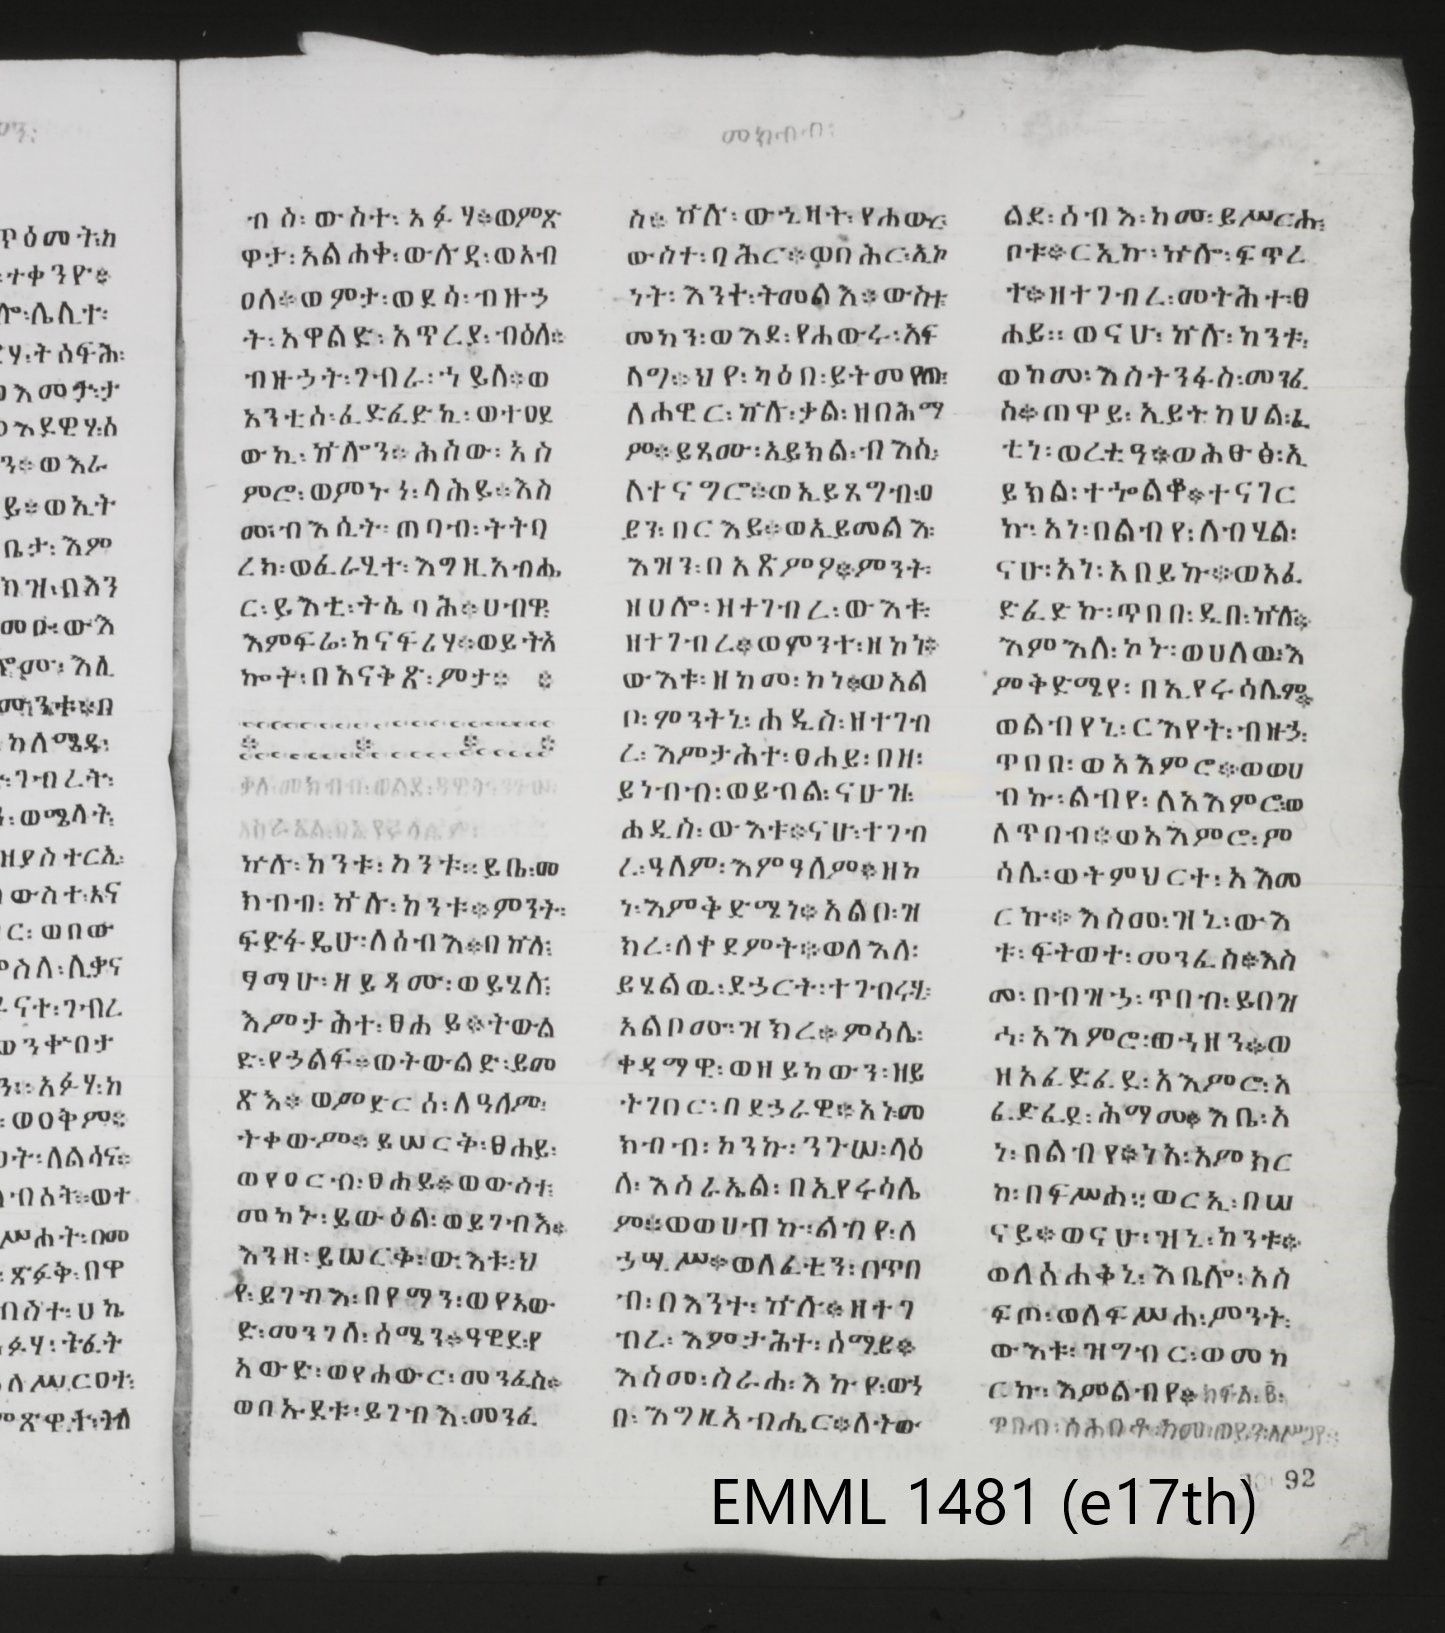 መክብብ፡
ብ ስ፡ ውስተ፡ አፉ ሃ፨ወምጽ
ዋታ፡አልሐቀ፡ውሉዷ፡ወአብ
ዐለ፨ወ ምታ፡ወደሳ፡ብዙኃ
ት፡አዋልድ፡ አጥረያ፡ብዕለ፨
ብዙኃት፡ገብራ፡ኀይለ፨ወ
አንቲሰ፡ፈድፈድኪ፡ወተዐደ
ውኪ፡ኵሎን፨ሐስው፡አስ
ምሮ፡ወምኑነ፡ላሕይ፨እስ
መ፡ብእሲት፡ጠባብ፡ትትባ
ረክ፡ወፈራሂተ፡እግዚአብሔ
ር፡ይእቲ፡ትሴባሕ፨ሀብዋ፡
እምፍሬ፡ከናፍሪሃ፨ወይትአ
ኰት፡በአናቅጽ፡ምታ፨ ፨
ቃለ፡መክብብ፡ወልደ፡ዳዊት፡
ኵሉ፡ከንቱ፡ከንቱ፡፡ይቤ፡መ
ክብብ፡ኵሉ፡ከንቱ፨ምንት፡
ፍድፋዴሁ፡ለሰብእ፨በኵለ፡
ፃማሁ፡ዘይጻሙ፡ወይሄሉ፡
እምታሕተ፡ፀሐይ፨ትውል
ድ፡የኃልፍ፨ወትውልድ፡ይመ
ጽእ፨ ወምድርሰ፡ለዓለም፡
ትቀውም፨ይሠርቅ፡ፀሐይ፡
ወየዐርብ፡ፀሐይ፨ወውስተ፡
መካኑ፡ይውዕል፡ወይገብእ፨
እንዘ፡ይሠርቅ፡ውእቱ፡ህ
የ፡ይገብእ፡በየማን፡ወየአው
ድ፡መንገለ፡ሰሜን፨ዓዊደ፡የ
አውድ፡ወየሐውር፡መንፈስ፨
ወበኡደቱ፡ይገብእ፡መንፈ
ስ፨ ኵሉ፡ውኂዛት፡የሐውር፡
ውስተ፡ባሕር፨ወበሕር፡ኢኮ
ነት፡እንተ፡ትመልእ፨ውስተ፡
መካን፡ወእደ፡የሐውሩ፡አፍ
ለግ፨ህየ፡ካዕበ፡ይትመየጡ፡
ለሐዊር፡ኵሉ፡ቃል፡ዘበሕማ
ም፨ይጻሙ፡አይክል፡ብእሲ፡
ለተናግሮ፨ወኢይጸግብ፡ዐ
ይን፡በርእይ፨ወኢይመልእ፡
እዝን፡በአጽምዖ፨ምንት፡
ዝሀሎ፡ዘተገብረ፡ውእቱ፡
ዘተገብረ፨ወምንተ፡ዘከነ፨
ውእቱ፡ዘከመ፡ከነ፨ወአል
ቦ፡ምንትኒ፡ሐዲስ፡ዘተገብ
ረ፡እምታሕተ፡ፀሐይ፡በዘ፡
ይነብብ፡ወይብል፡ናሁ፡ዝ፡
ሐዲስ፡ውእቱ፨ናሁ፡ተገብ
ረ፡ዓለም፡እምዓለም፨ዘከ
ነ፡እምቅድሜነ፨አልቦ፡ዝ
ክረ፡ለቀደምት፨ወለእለ፡
ይሄልዉ፡ደኃርት፡ተገብሩሂ፡
አልቦሙ፡ዝክረ፨ምሳሌ፡
ቀዳማዊ፡ወዘይከውን፡ዘይ
ትገበር፡በደኃራዊ፨አነ፡መ
ክብብ፡ከንኩ፡ንጉሠ፡ላዕ
ለ፡እስራኤል፡በኢየሩሳሌ
ም፨ወወሀብኩ፡ልብየ፡ለ
ኃሣሥ፨ወለፈቲን፡በጥበ
ብ፡በእንተ፡ኵሉ፨ዘተገ
ብረ፡እምታሕተ፡ሰማይ፨
እስመ፡ስራሐ፡እኩየ፡ወኃ
በ፡እግዚአብሔር፨ለትው
ልደ፡ሰብእ፡ከመ፡ይሥርሑ፡
ቦቱ፨ርኢኩ፡ኵሎ፡ፍጥረ
ተ፨ዘተገብረ፡መትሕተ፡ፀ
ሐይ፡፡ወናሁ፡ኵሉ፡ከንቱ፡
ወከመ፡እስትንፋስ፡መንፈ
ስ፨ጠዋይ፡ኢይትከሀል፡ፈ
ቲነ፡ወረቲዓ፨ወሕፁፅ፡ኢ
ይክል፡ተኈልቆ፨ተናገር
ኩ፡አነ፡በልብየ፡ለብሂል፡
ናሁ፡አነ፡አበይኩ፨ወአፈ
ድፈድኩ፡ጥበበ፡ዲበ፡ኵሉ፨
እምእለ፡ኮኑ፡ወሀለዉ፡እ
ምቅድሜየ፡በኢየሩሳሌም፨
ወልብየኒ፡ርእየት፡ብዙኃ፡
ጥበበ፡ወአእምሮ፨ወወሀ
ብኩ፡ልብየ፡ለአእምሮ፡ወ
ለጥበብ፨ወአእምሮ፡ም
ሳሌ፡ወትምህርተ፡አእመ
ርኩ፨እስመ፡ዝኒ፡ውእ
ቱ፡ፍትወተ፡መንፈስ፨እስ
መ፡በብዝኃ፡ጥበብ፡ይበዝ
ኅ፡አእምሮ፡ወኀዘን፨ወ
ዘአፈድፈደ፡አእምሮ፡አ
ፈድፈደ፡ሕማመ፨እቤ፡አ
ነ፡በልብየ፨ነአ፡አምክር
ከ፡በፍሥሐ፡፡ወርኢ፡በሠ
ናይ፨ወናሁ፡ዝኒ፡ከንቱ፨
ወለሰሐቅኒ፡እቤሎ፡አስ
ፍጦ፡ወለፍሥሐ፡ምንት፡
ውእቱ፡ዝግብር፡ወመከ
ርኩ፡እምልብየ፨ክፍል፡፪፡
EMML 1481 (e17th)
92